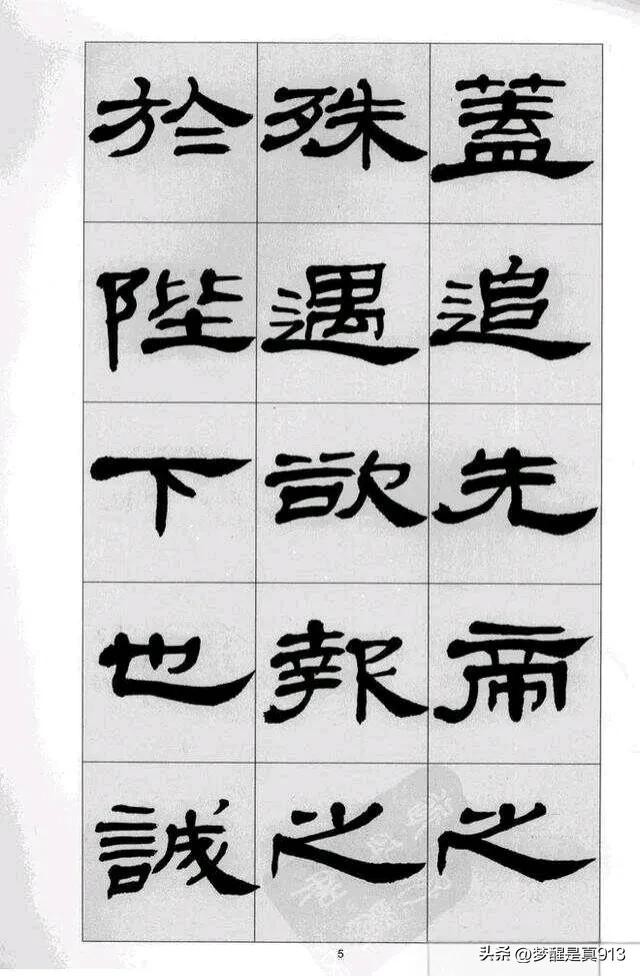 蓋追先帝之
殊遇欲報之
於陛下也誠
5
头条 @梦醒是真913